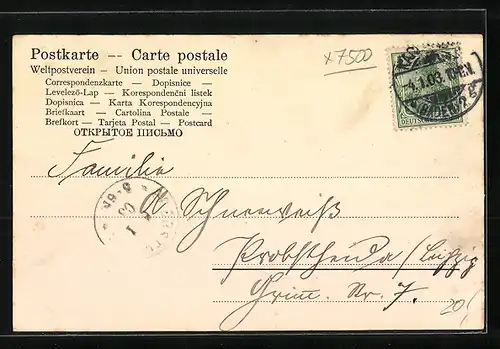 Postkarte -- Carte postale
x7500
Weltpostverein – Union postale universelle
Correspondenzkarte — Dopisnice —
Levelező-Lap — Korespondenční listek
Dopisnica — Karta Korespondencyjna
Briefkaart — Cartolina Postale —
Brefkort — Tarjeta Postal — Postcard
ОТКРЫТОЕ ПИСЬМО
4.1.03.
Familie
A Schneeweiß
Probstheida / Leipzig
Grim. Nr. 7.
20/